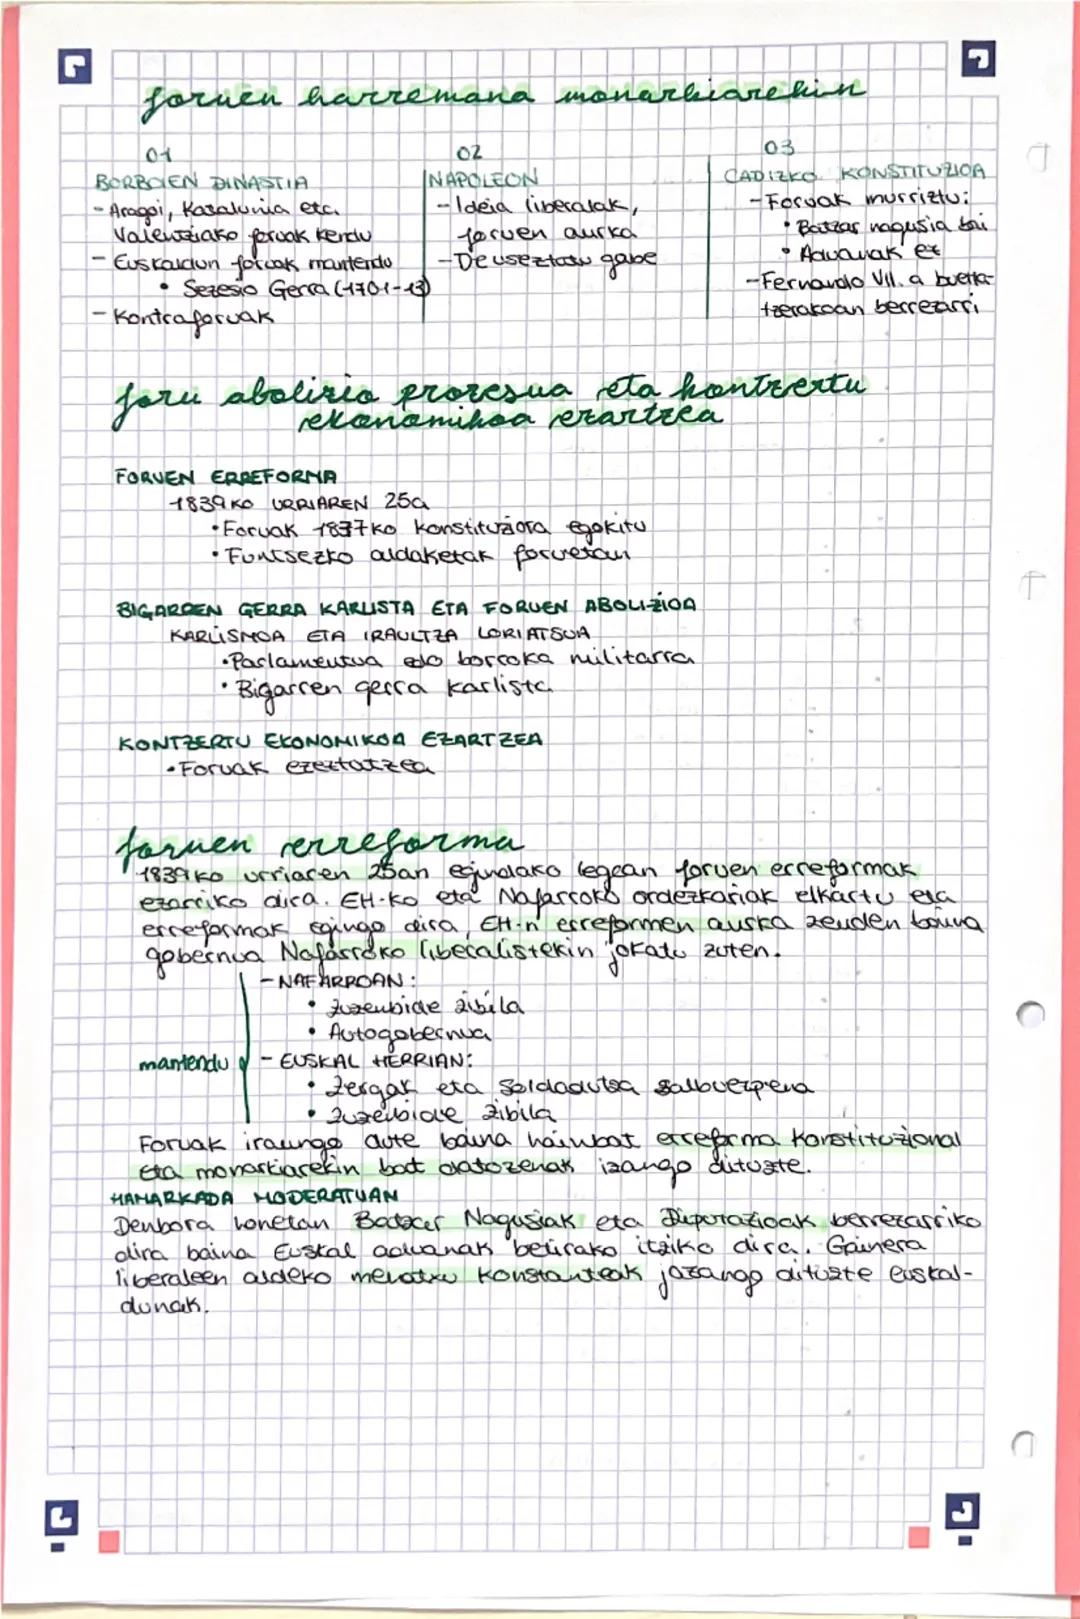 foruen harremana monarkiarekin
01
BORBOIEN DINASTIA
- Aragoi, Katalunia etc.
Valentziako foruak kendu
- Euskaldun foruak mantendu
• Sezesio Gerra (1701-13)
- Kontraforuak
02
NAPOLEON
- Ideia liberalak,
foruen aurka
- Deuseztatu gabe
03
CADIZKO KONSTITUZIOA
- Foruak murriztu:
• Batzar nagusia bai
• Aduanak ez
- Fernando VII.a buelta-
tzerakoan berrezarri
foru abolizio prozesua eta kontzertu
ekonomikoa ezartzea
FORUEN ERREFORMA
1839KO URRIAREN 25a
• Foruak 1837ko Konstituziora egokitu
• Funtsezko aldaketak foruetan
BIGARREN GERRA KARLISTA ETA FORUEN ABOLIZIOA
KARLISMOA ETA IRAULTZA LORIATSUA
• Parlamentua edo borroka militarra
• Bigarren gerra karlista
KONTZERTU EKONOMIKOA EZARTZEA
• Foruak ezeztatzea
foruen erreforma
1839ko urriaren 25an egindako legean foruen erreformak
ezarriko dira. EH-ko eta Nafarroko ordezkariak elkartu eta
erreformak egingo dira, EH-n erreformen aurka zeuden baina
gobernua Nafarroko liberalistekin jokatu zuten.
- NAFARROAN:
• Zuzenbide zibila
• Autogobernua
mantendu - EUSKAL HERRIAN:
• Zergak eta soldadutza salbuezpena
• Zuzenbide zibila
Foruak iraungo dute baina hainbat erreforma Konstituzional
eta monarkiarekin bat datozenak izango dituzte.
HAMARKADA MODERATUAN
Denbora honetan Batzar Nagusiak eta Diputazioak berrezarriko
dira baina Euskal aduanak betirako itxiko dira. Gainera
liberaleen aldeko mehatxu konstanteak jasango dituzte euskal-
dunak.